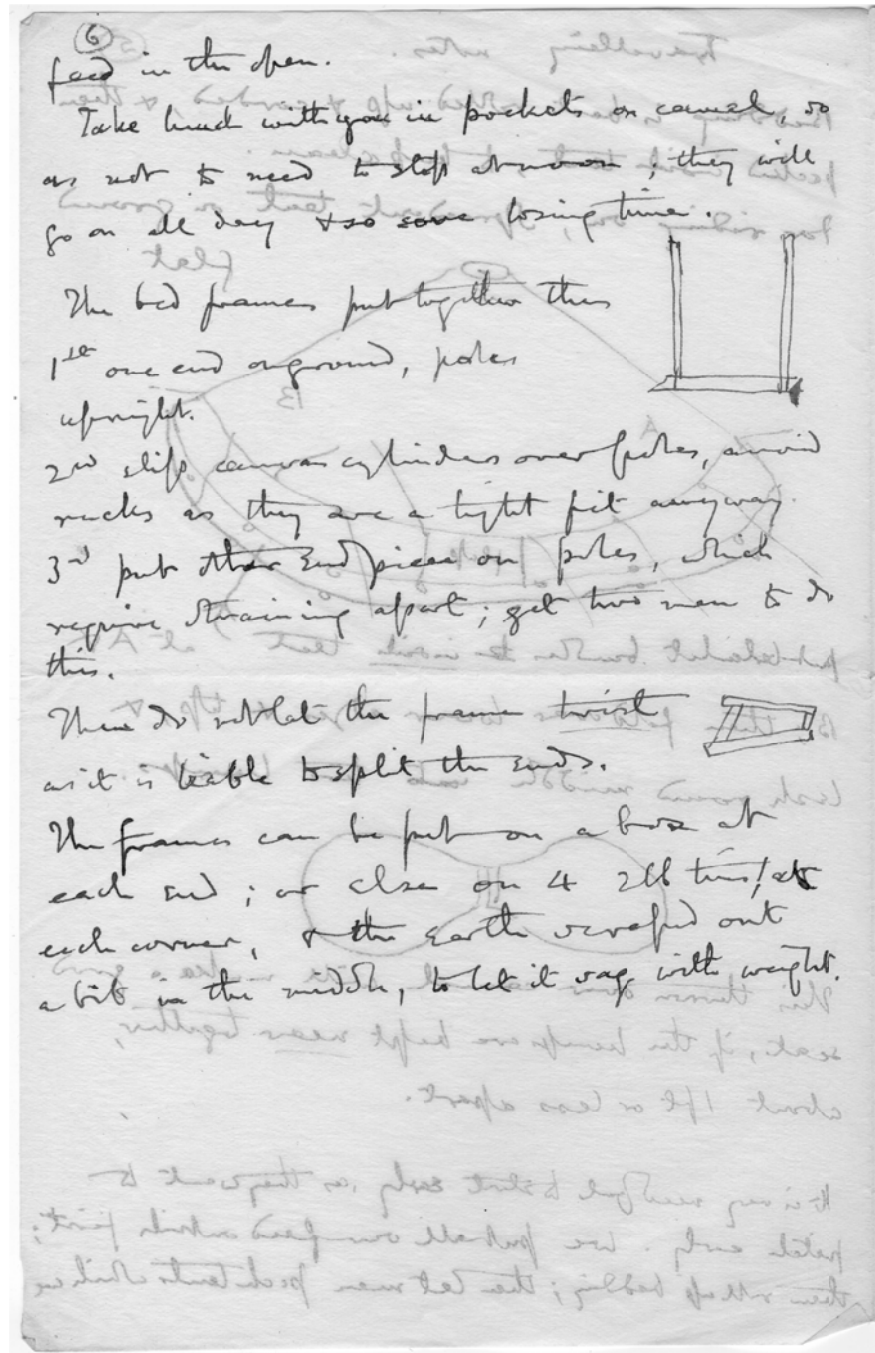 6
feed in the open.
Take lunch with you in pockets on camel, so
as not to need to stop at noon; they will
go on all day & so save losing time.
The bed frames put together thus
1st one end on ground, poles
upright.
2nd slip canvas cylinders over poles, avoid
rucks as they are a tight fit anyway.
3d put other end piece on poles, which
require straining apart; get two men to do
this.
Then do not let the frame twist
as it is liable to split the ends.
The frames can be put on a box at
each end; or else on 4 2lb tins, at
each corner, & the earth scraped out
a bit in the middle, to let it sag with weight.